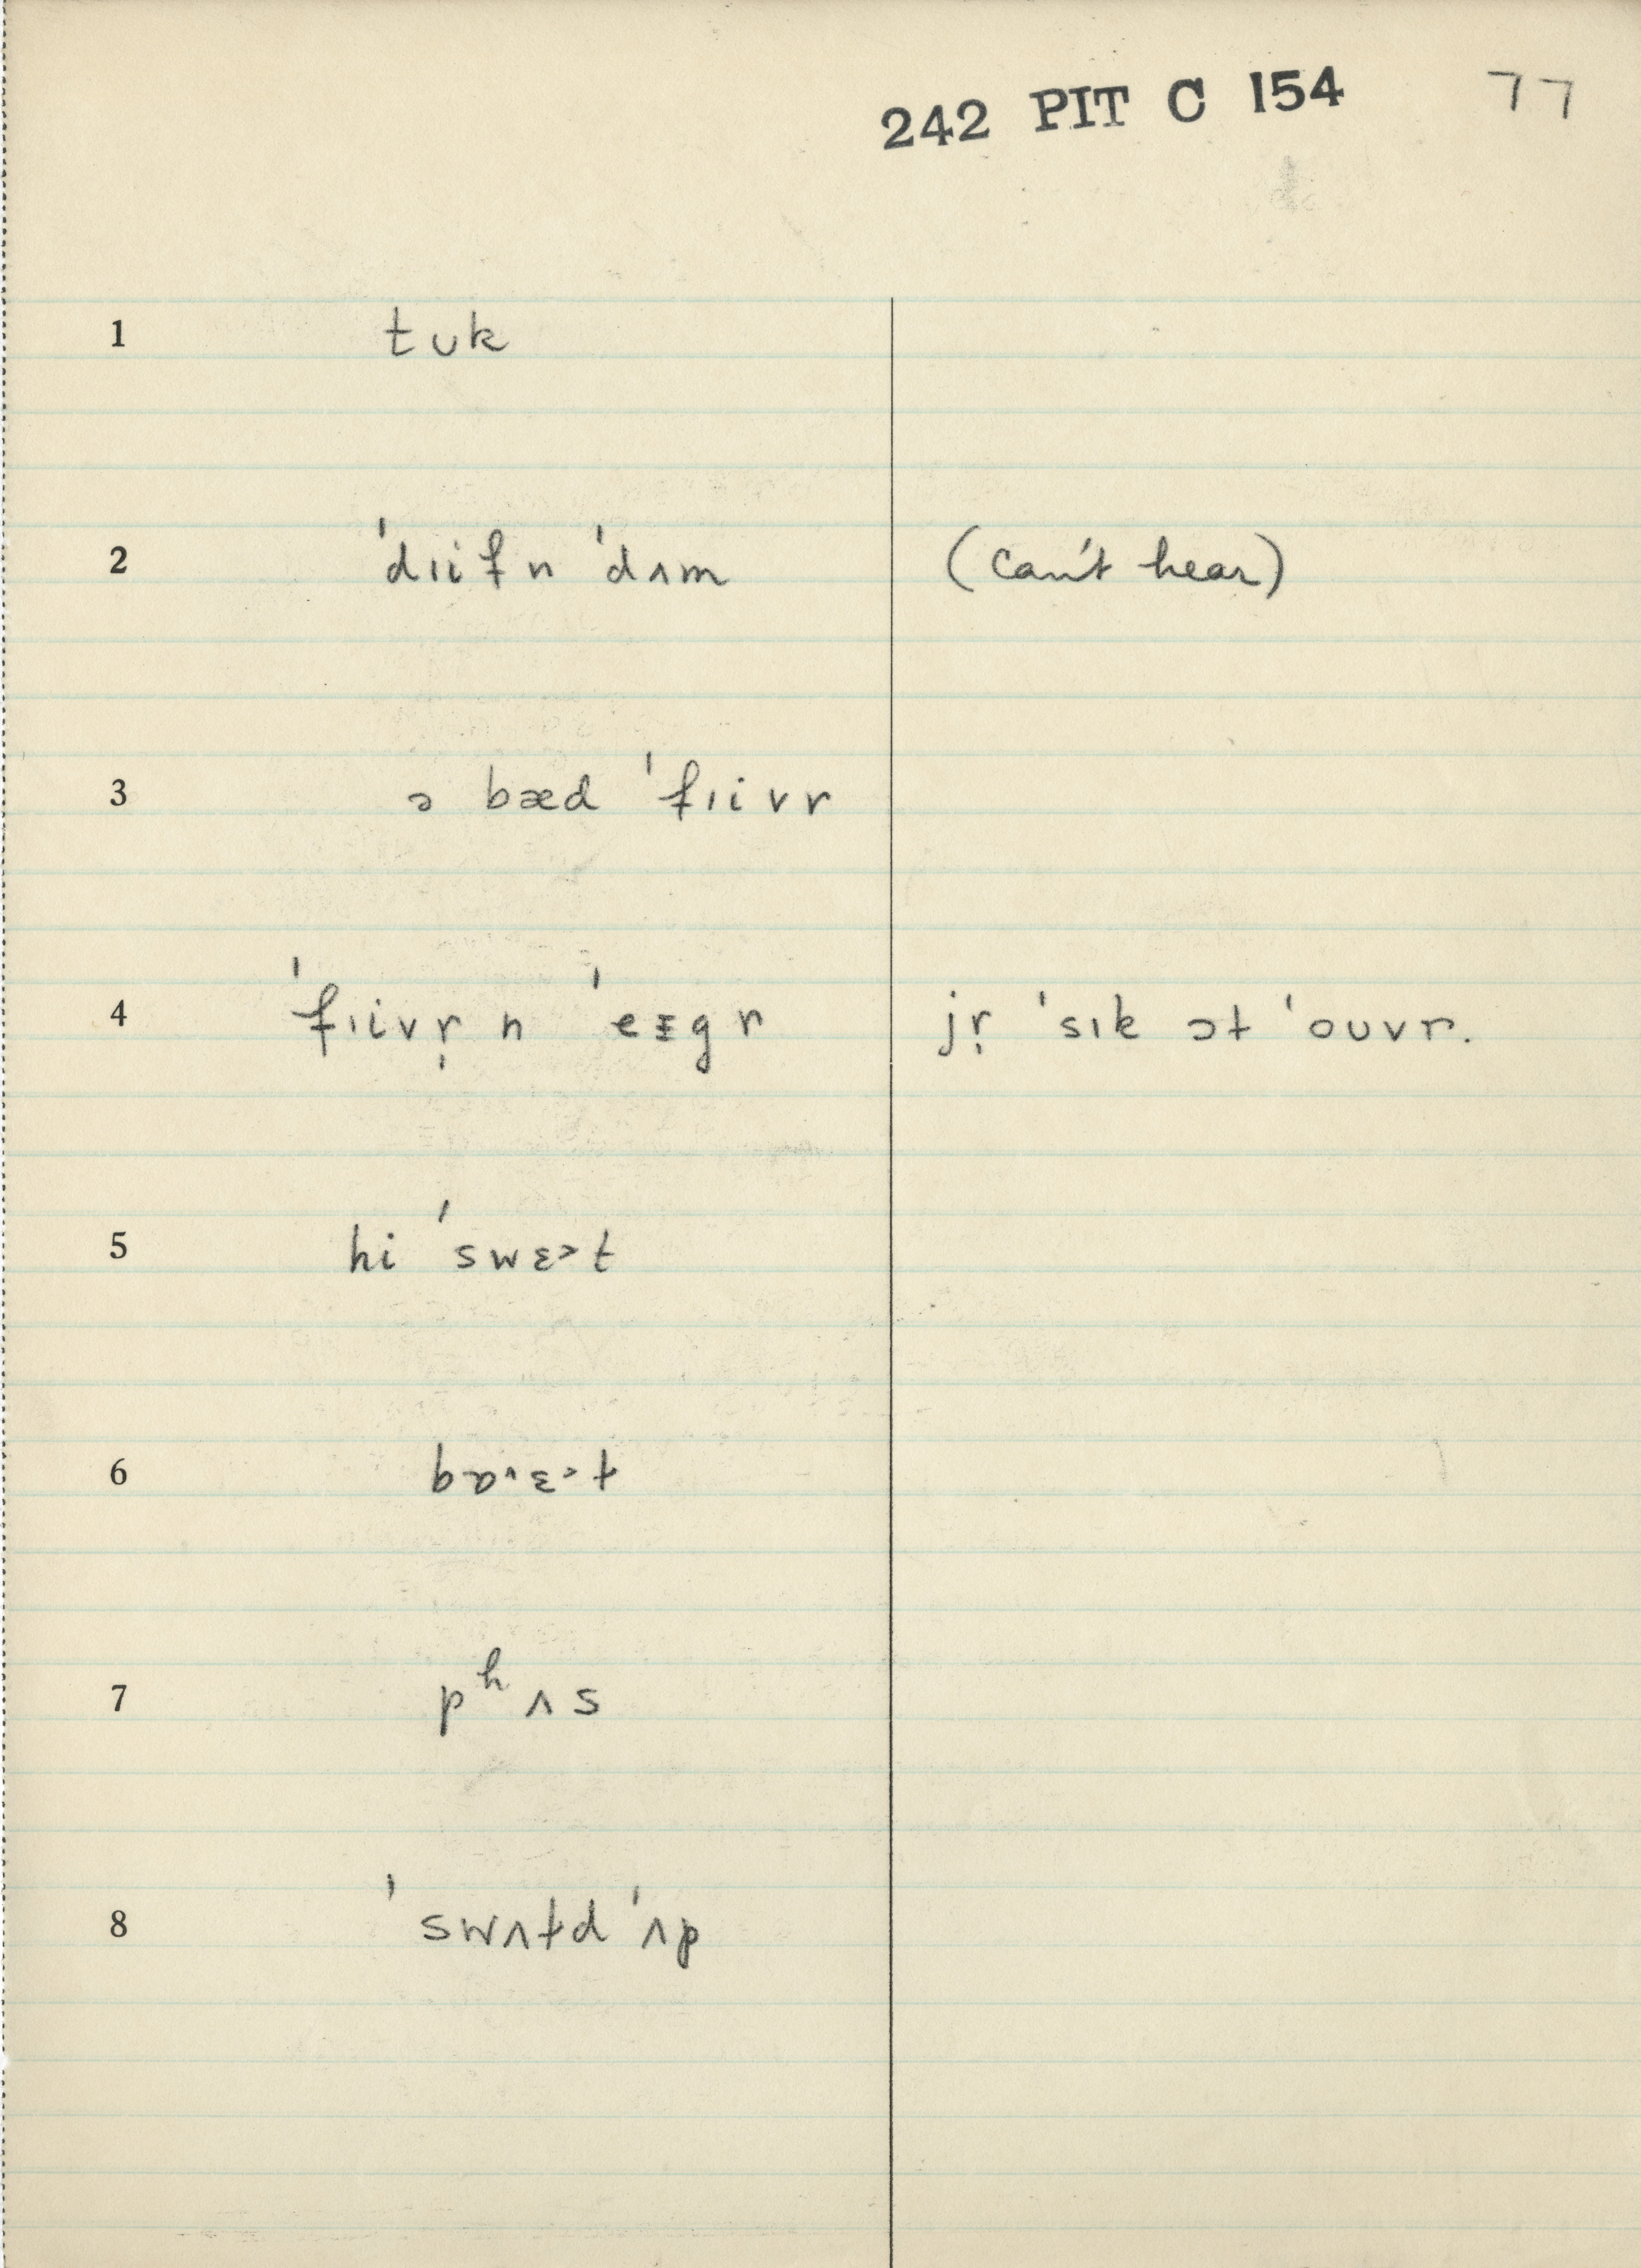 242 PIT C 154 77
1 tʊk
2 ˈdɪifn ˈdʌm (can't hear)
3 ə bæd ˈfɪivr
4 ˈfɪivr̩ n ˈeɪgr jr̩ ˈsɪk ət ˈoʊvr.
5 hi ˈswɛ˃t
6
7 pʰʌs
8 ˈswʌtd ˈʌp